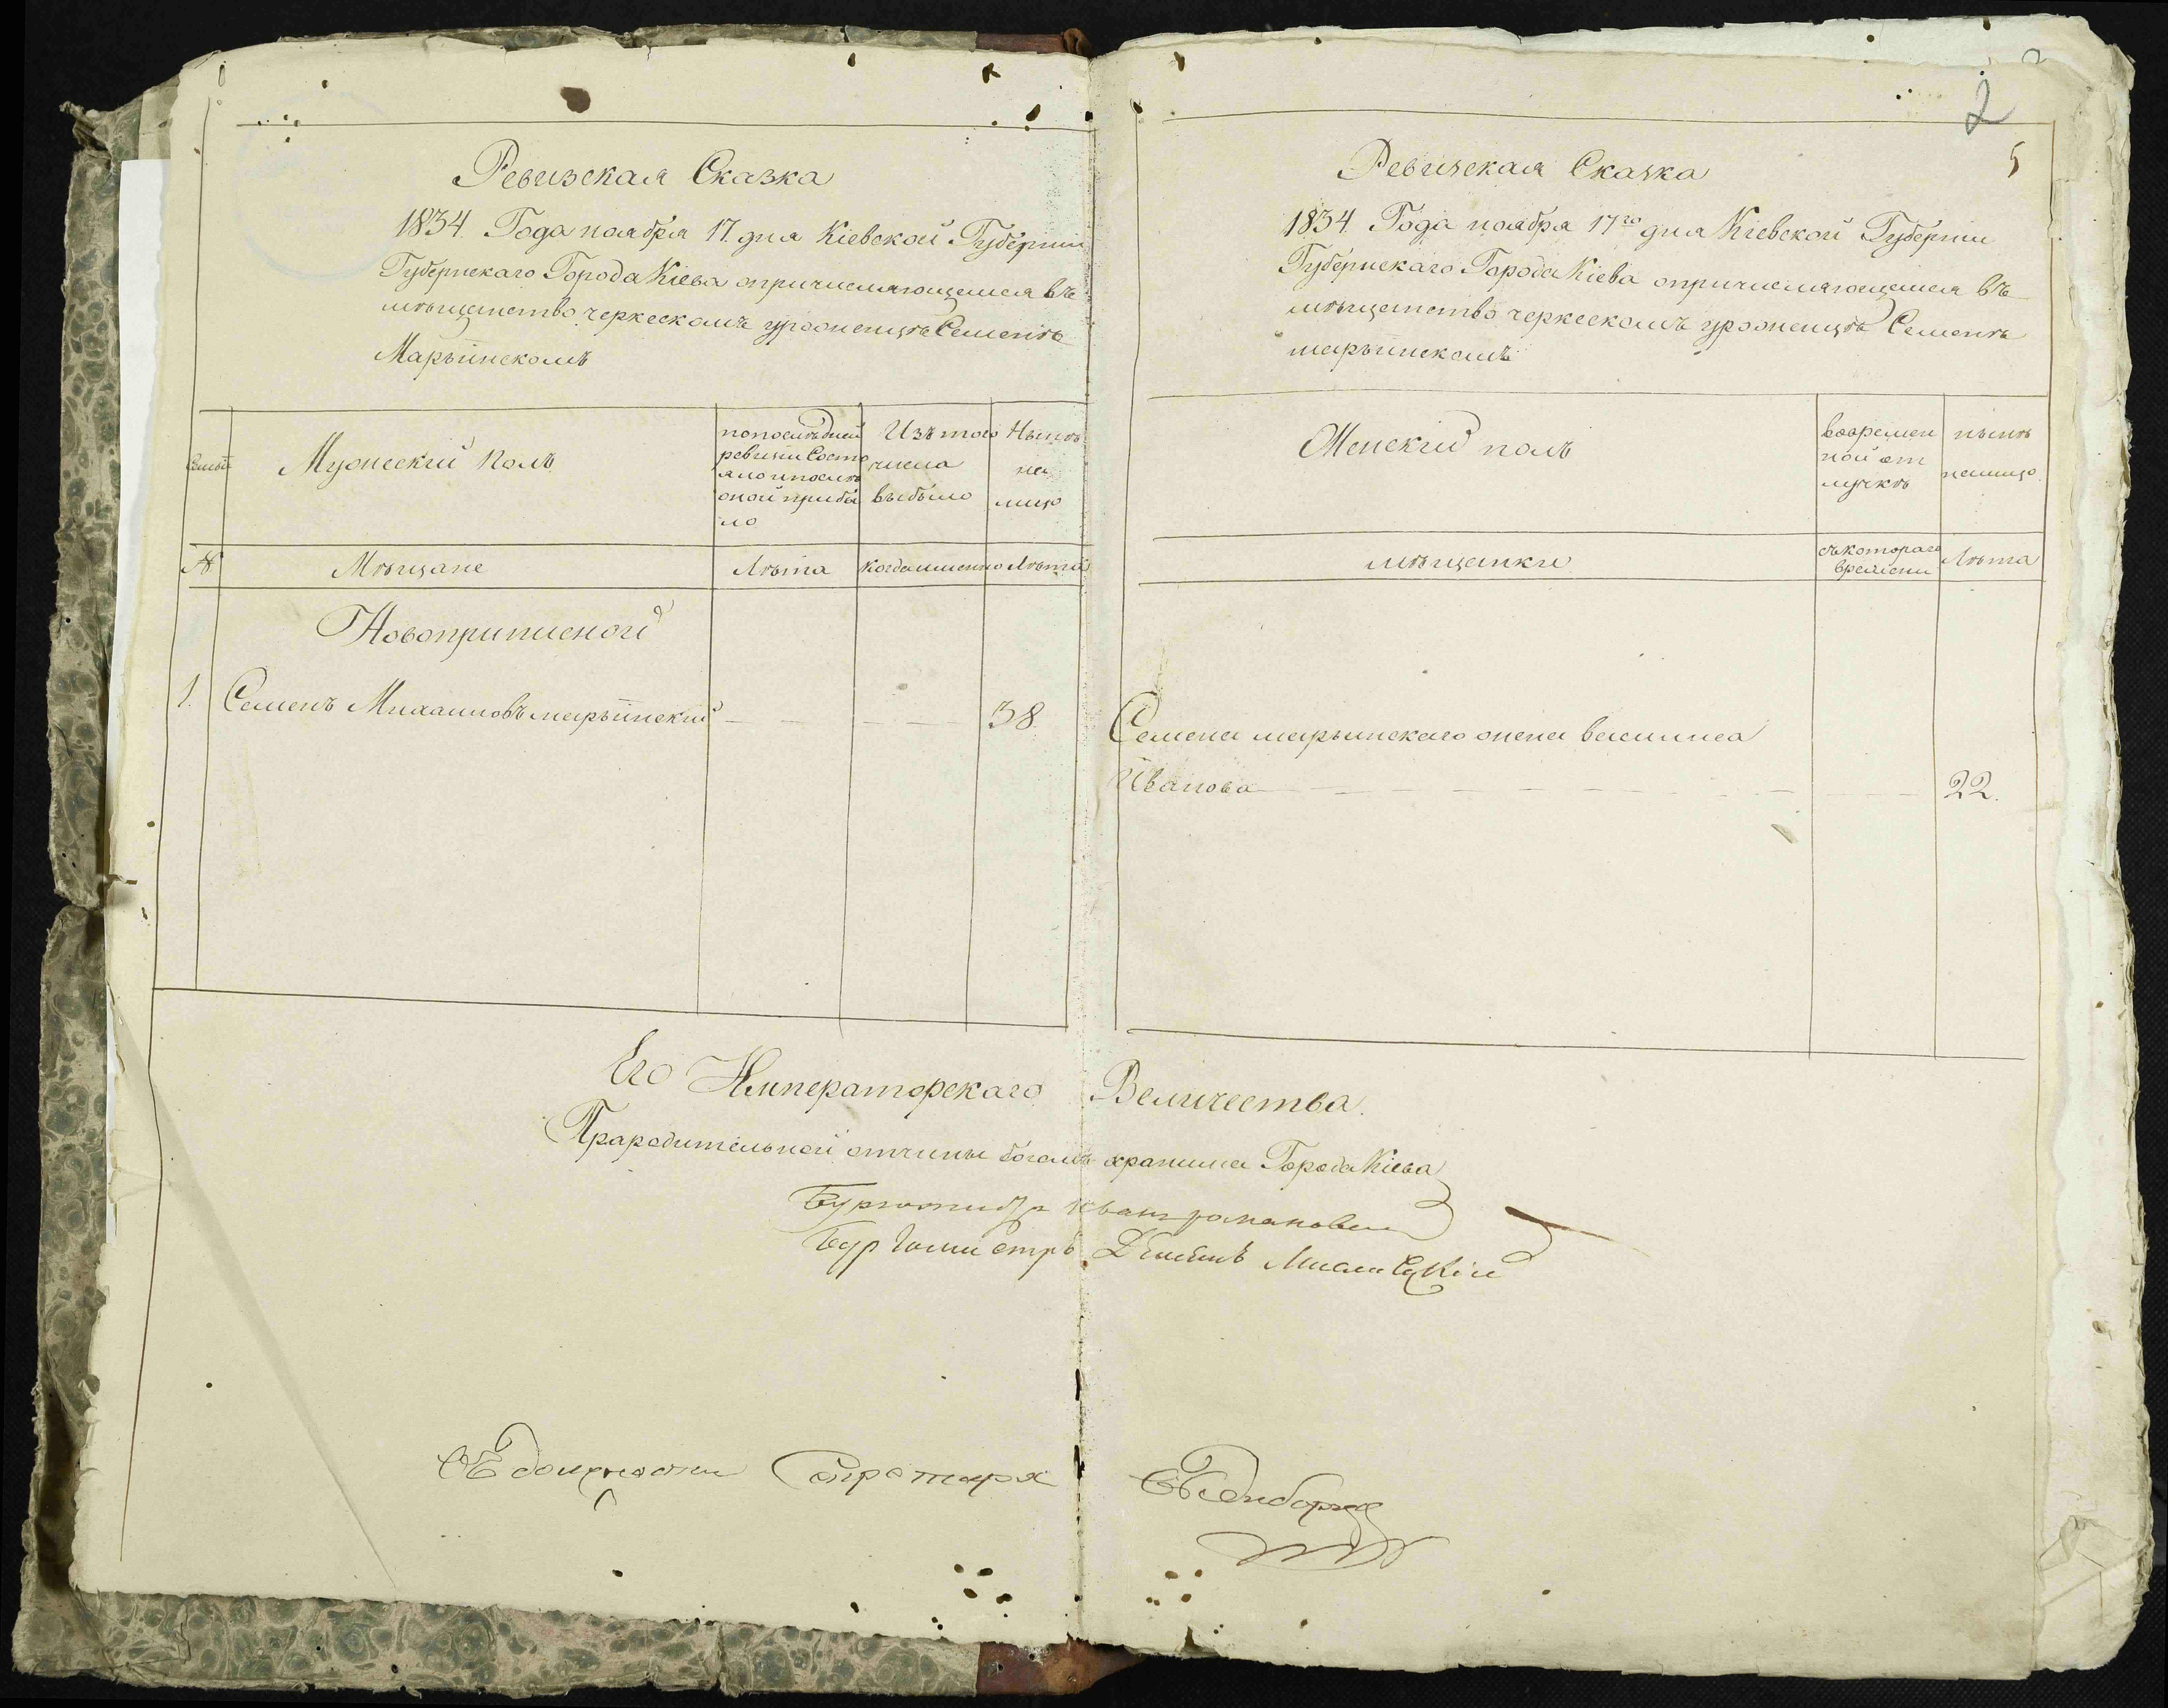 Ревизская Сказка
1834. Года ноября 17. дня Кіевской Губерніи
Губернскаго Города Кіева опричисляющемся въ
мѣщанство черкескомъ уроженцѣ Семенѣ
Марьинскомъ
Семьи
Мужескій полъ
попослѣдней
ревизіи Состо
яло ипослѣ
оной прибы
ло
Изъ того
числа
выбыло
Нынѣ
на
лицо
№
Мѣщане
Лѣта
Когда именно
Лѣта
Новоприписной
1. Семенъ Михаиловъ марьинскій — — — — 38.
2
5
Ревизская Сказка
1834. Года ноября 17го дня Кіевской Губерніи
Губернскаго Города Кіева опричисляющемся въ
мѣщанство черкескомъ уроженцѣ Семенѣ
марьинскомъ
Женскій полъ
вовремен
ной от
лучкѣ
нынѣ
налицо
мѣщанки
съкотораго
времени
Лѣта
Семена марьинскаго жена василиса
Иванова — — — — — — — — — 22.
Его Императорскаго Величества.
Прародительной отчины богомъ хранима Города Кіева
Бургомистр Иван романович
Бургомистръ
Въ должности Секретаря